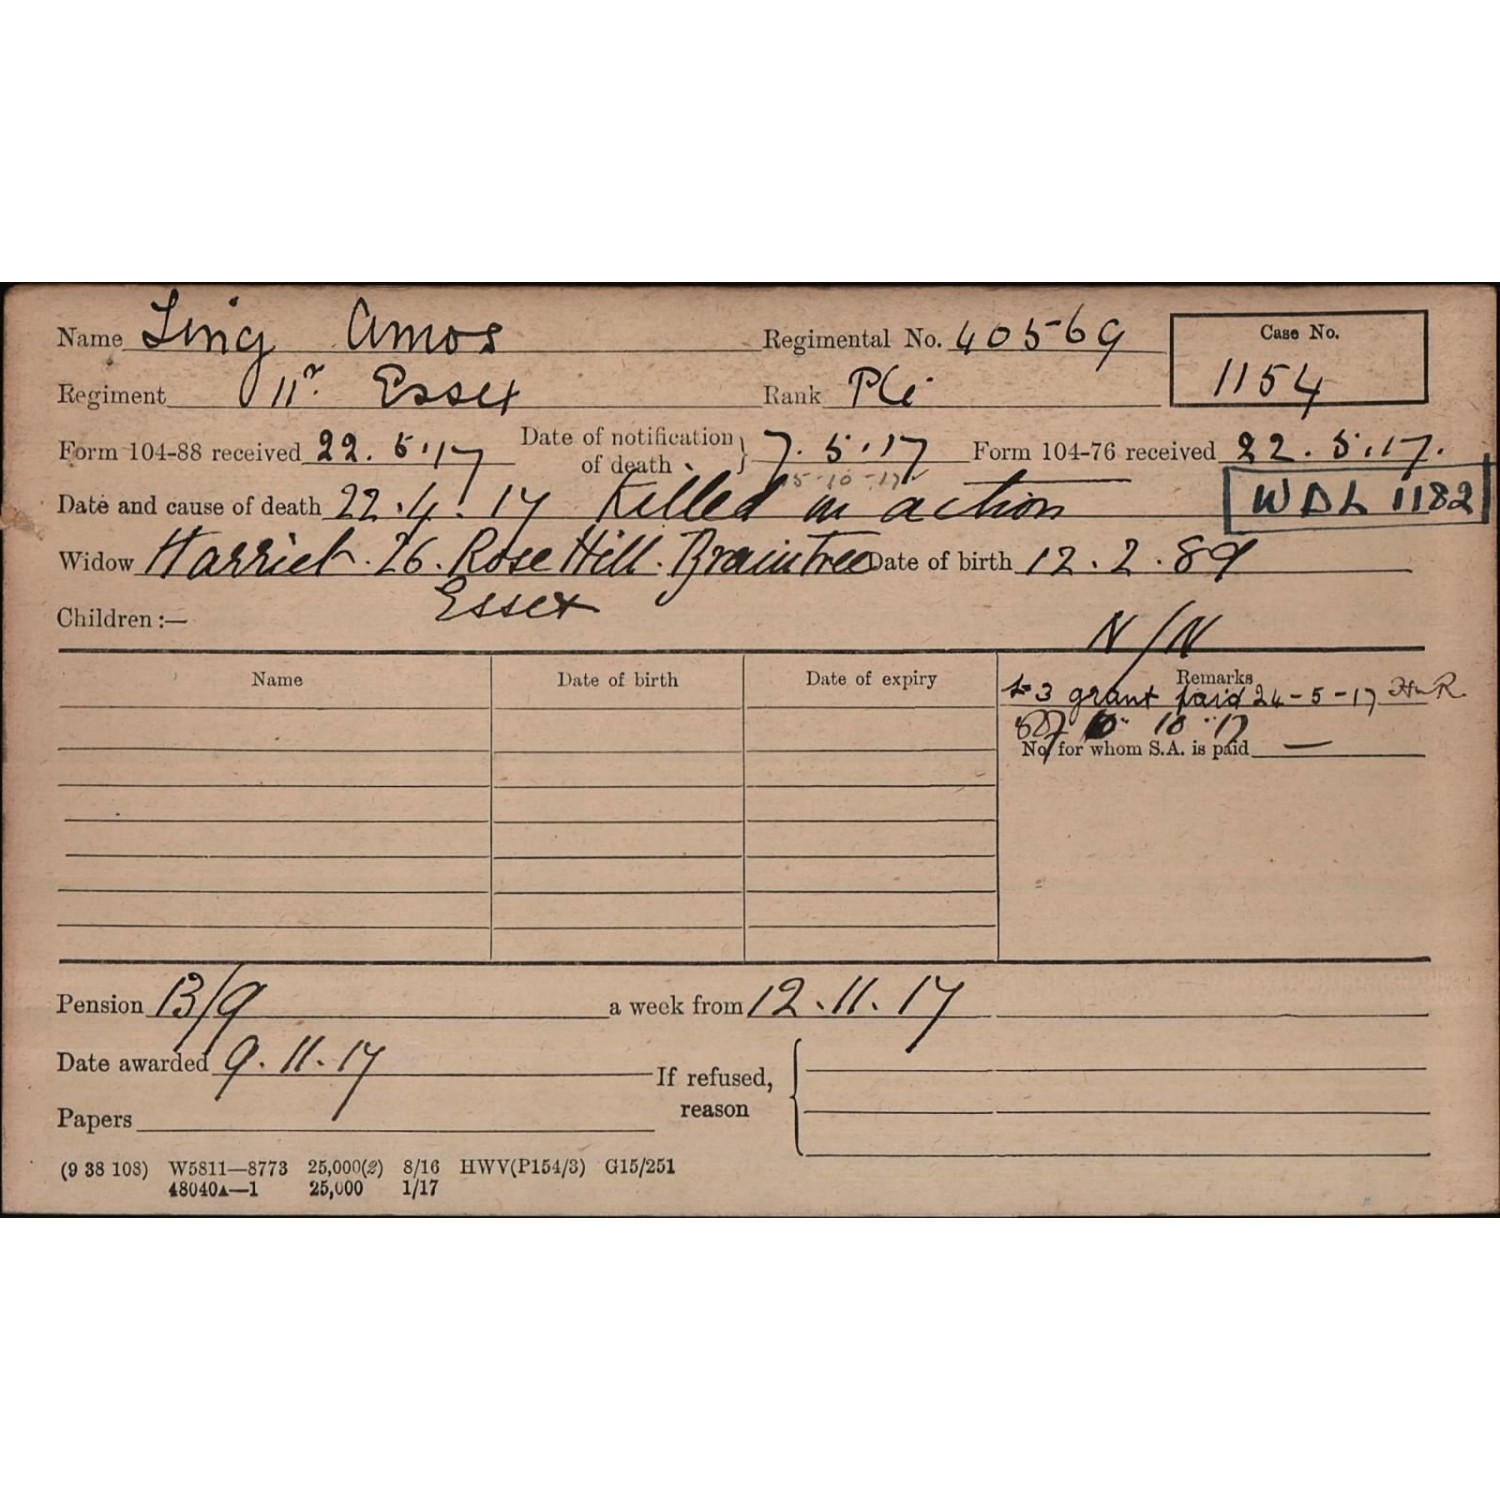 Name Ling Amos Regimental No. 40569 Case No.
1154
Regiment 11th Essex Rank Pte
Form 104-88 received 22.5.17 Date of notification of death 7.5.17 Form 104-76 received 22.5.17.
15-10-17
Date and cause of death 22.4.17 Killed in action WDL 1182
Widow Harriet. 26. Rose Hill. Braintree Date of birth 12.2.89
Essex
Children :—
N/N
Name Date of birth Date of expiry Remarks
£3 grant paid 24-5-17
10 17
No. for whom S.A. is paid —
Pension 13/9 a week from 12.11.17
Date awarded 9.11.17
If refused, reason
Papers
(9 38 108) W5811—8773 25,000(2) 8/16 HWV(P154/3) G15/251
48040A—1 25,000 1/17